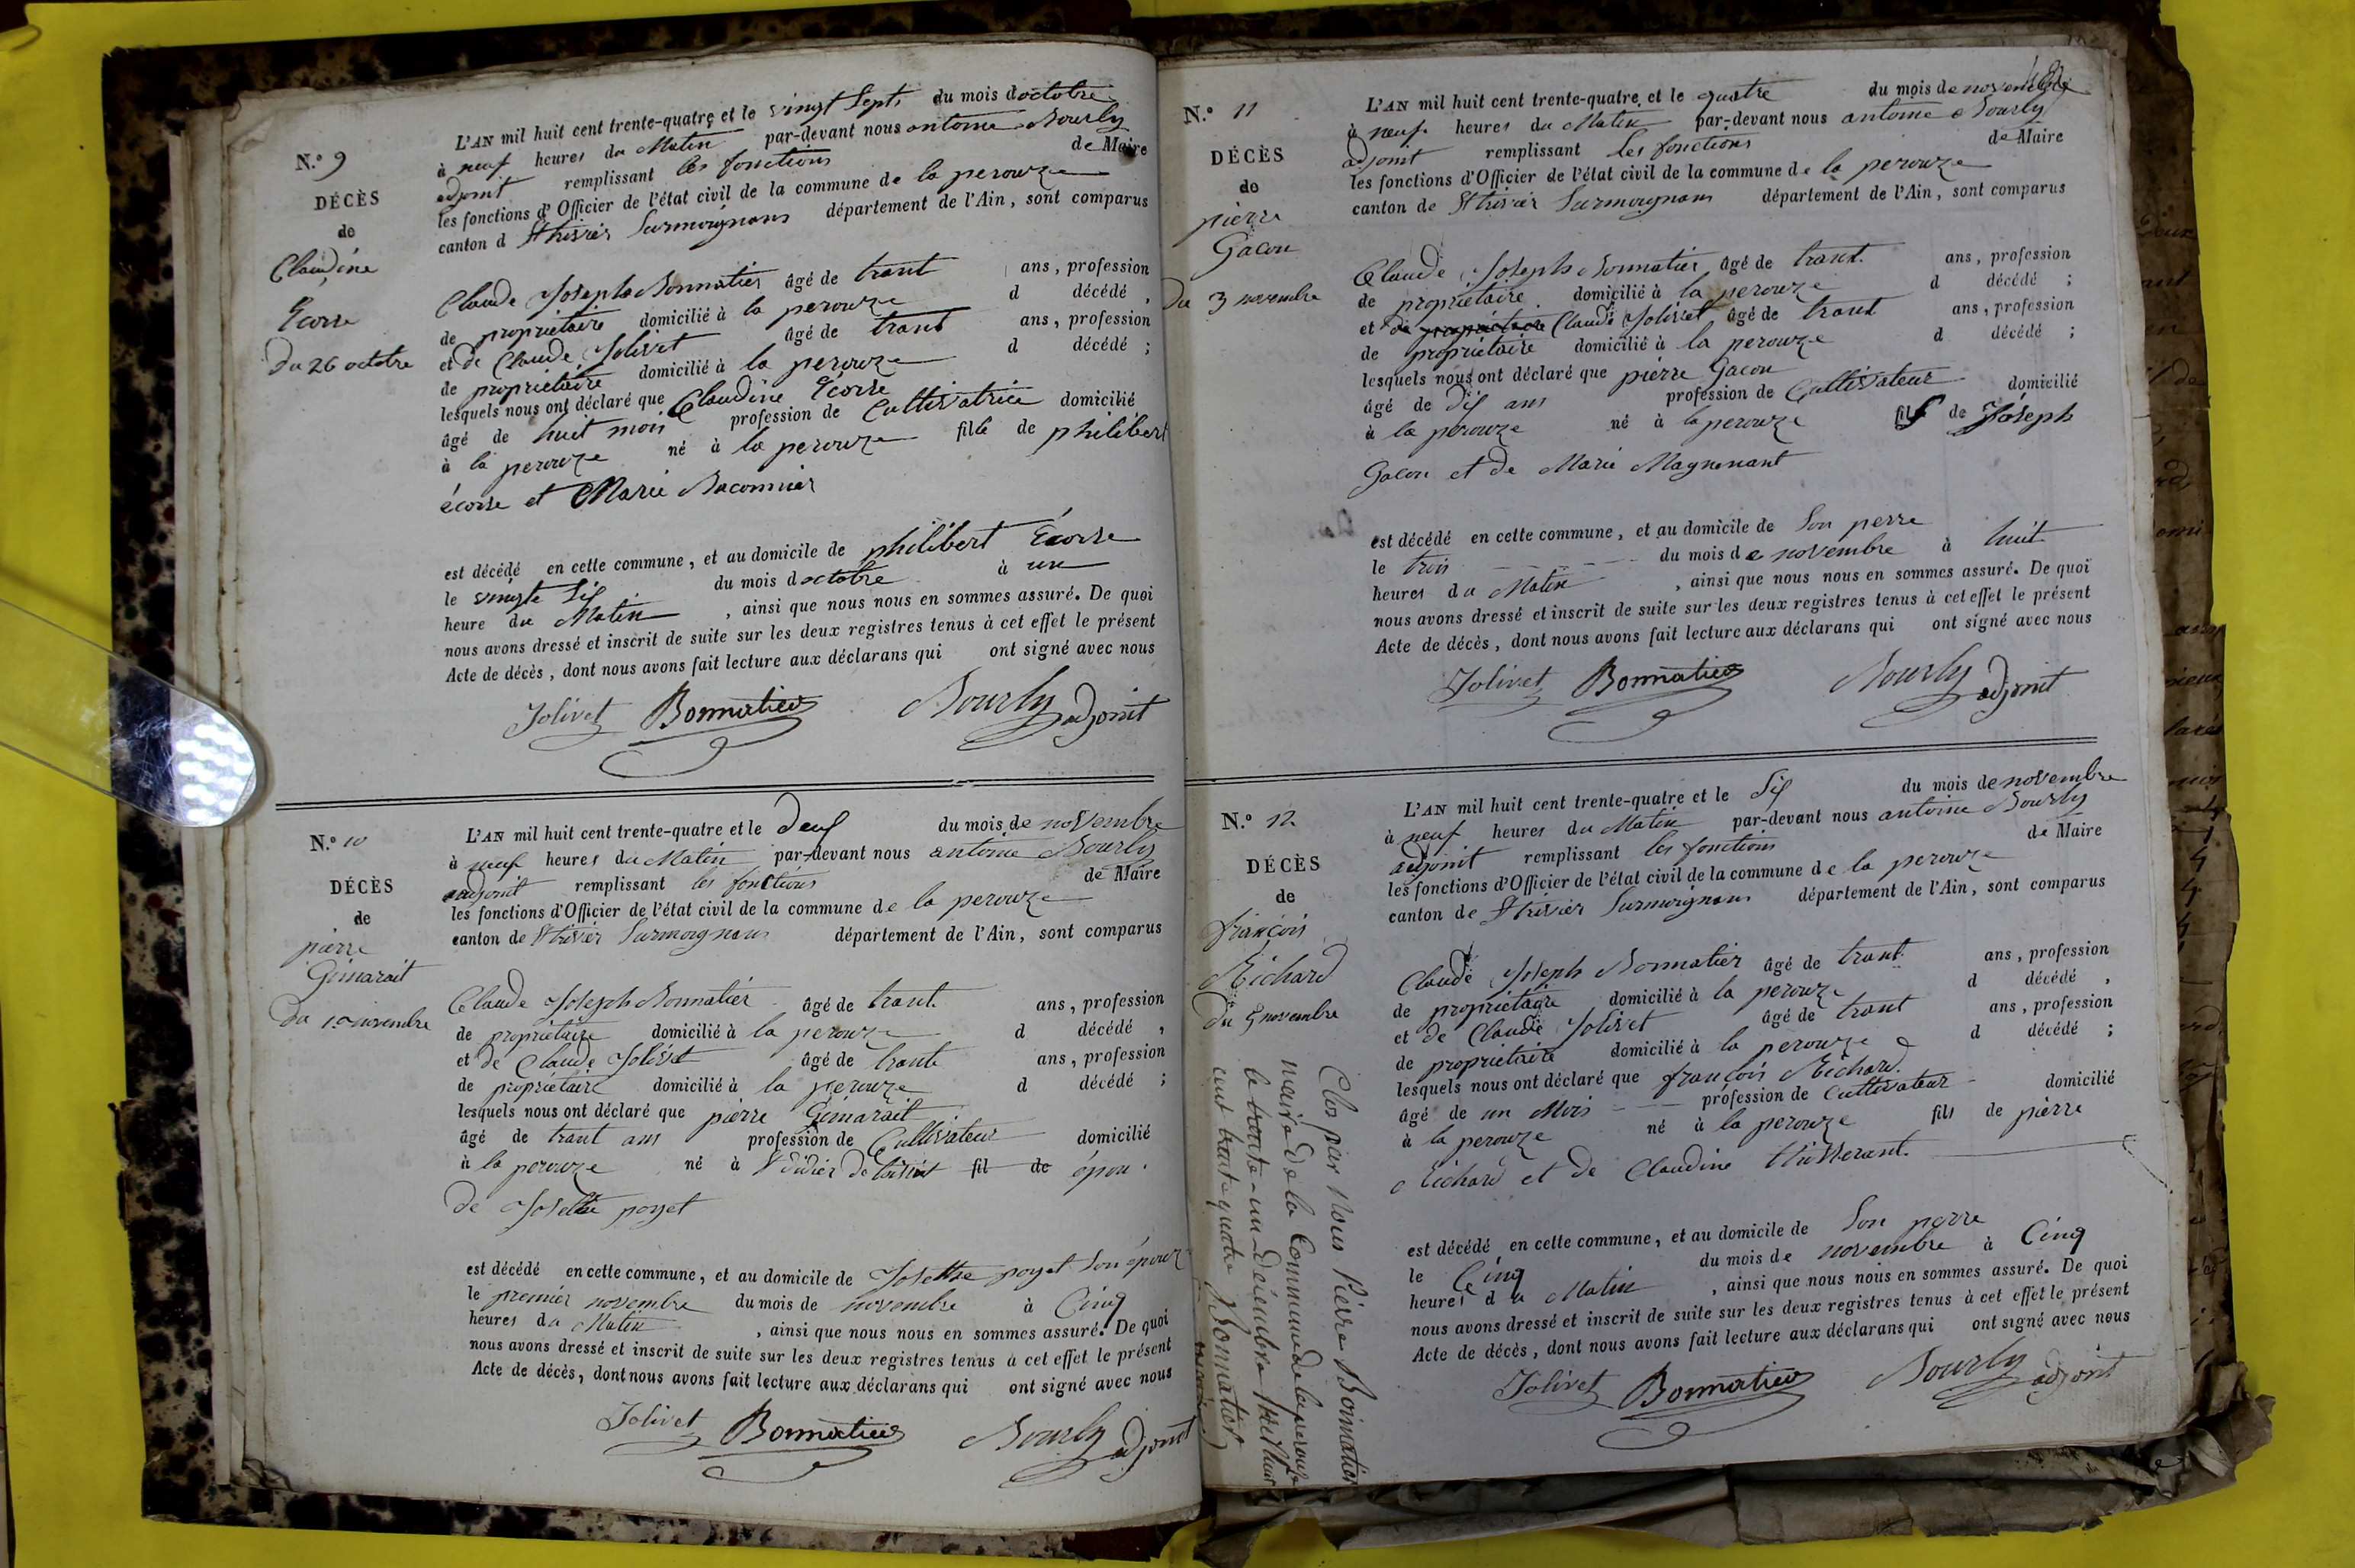 N.º 9
DÉCÈS
de
Claudine
Ecorse
Du 26 octobre
L'AN mil huit cent trente-quatre et le vingt Septs du mois doctobre
à neuf heures du Matin par-devant nous antoine Bourly
adjoint remplissant les fonctions de Maire
les fonctions d'Officier de l'état civil de la commune de la perouze
canton d St trivier Surmoignans département de l'Ain, sont comparus
Claude Joseph Bonnatier âgé de trant ans, profession
de propriétaire domicilié à la perouze d décédé,
et de Claude Jolivet âgé de trant ans, profession
de propriétaire domicilié à la perouze d décédé;
lesquels nous ont déclaré que Claudine Ecorse
âgé de huit mois profession de Cultivatrice domicilié
à la perouze né à la perouze fille de philibert
écorse et Marie Baconnier
est décédé en cette commune, et au domicile de philibert Écorse
le vingte Six du mois doctobre à une
heure du Matin, ainsi que nous nous en sommes assuré. De quoi
nous avons dressé et inscrit de suite sur les deux registres tenus à cet effet le présent
Acte de décès, dont nous avons fait lecture aux déclarans qui ont signé avec nous
Jolivet Bonnatier Bourly adjoint
N.º 10
DÉCÈS
de
pierre
Gimarait
Du 1er novembre
L'AN mil huit cent trente-quatre et le deux du mois de novembre
à neuf heures du Matin par-devant nous antoine Bourly
adjoint remplissant les fonctions de Maire
les fonctions d'Officier de l'état civil de la commune de la perouze
canton de St trivier Surmoignans département de l'Ain, sont comparus
Claude Joseph Bonnatier âgé de trant ans, profession
de propriétaire domicilié à la perouze d décédé,
et de Claude Jolivet âgé de trante ans, profession
de propriétaire domicilié à la perouze d décédé;
lesquels nous ont déclaré que pierre Gimarait
âgé de trant ans profession de Cultivateur domicilié
à la perouze né à St didier de fil de épou
de Josette poyet
est décédé en cette commune, et au domicile de Josette poyet Son épouz
le premier novembre du mois de novembre à Cinq
heures du Matin, ainsi que nous nous en sommes assuré. De quoi
nous avons dressé et inscrit de suite sur les deux registres tenus à cet effet le présent
Acte de décès, dont nous avons fait lecture aux déclarans qui ont signé avec nous
Jolivet Bonnatier Bourly adjoint
N.º 11
DÉCÈS
de
pierre
Gacon
Du 3 novembre
L'AN mil huit cent trente-quatre et le quatre du mois de novembre
à neuf heures du Matin par-devant nous antoine Bourly
adjoint remplissant les fonctions de Maire
les fonctions d'Officier de l'état civil de la commune de la perouze
canton de St trivier Surmoignans département de l'Ain, sont comparus
Claude Joseph Bonnatier âgé de trant ans, profession
de propriétaire domicilié à la perouze d décédé;
et de propriétaire Claude Jolivet âgé de trant ans, profession
de propriétaire domicilié à la perouze d décédé;
lesquels nous ont déclaré que pierre Gacon
âgé de dix ans profession de Cultivateur domicilié
à la perouze né à la perouze fils de Joseph
Gacon et de Marie Magnenant
est décédé en cette commune, et au domicile de Son perre
le trois du mois de novembre à huit
heures du Matin, ainsi que nous nous en sommes assuré. De quoi
nous avons dressé et inscrit de suite sur les deux registres tenus à cet effet le présent
Acte de décès, dont nous avons fait lecture aux déclarans qui ont signé avec nous
Jolivet Bonnatier Bourly adjoint
N.º 12
DÉCÈS
de
françois
Richard
Du 5 novembre
L'AN mil huit cent trente-quatre et le Six du mois de novembre
à neuf heures du Matin par-devant nous antoine Bourly
adjoint remplissant les fonctions de Maire
les fonctions d'Officier de l'état civil de la commune de la perouze
canton de St trivier Surmoignans département de l'Ain, sont comparus
Claude Joseph Bonnatier âgé de trant ans, profession
de propriétaire domicilié à la perouze d décédé,
et de Claude Jolivet âgé de trant ans, profession
de propriétaire domicilié à la perouze d décédé;
lesquels nous ont déclaré que françois Richard
âgé de un Mois profession de Cultivateur domicilié
à la perouze né à la perouze fils de pierre
Richard et de Claudine
est décédé en cette commune, et au domicile de Son perre
le Cinq du mois de novembre à Cinq
heures du Matin, ainsi que nous nous en sommes assuré. De quoi
nous avons dressé et inscrit de suite sur les deux registres tenus à cet effet le présent
Acte de décès, dont nous avons fait lecture aux déclarans qui ont signé avec nous
Jolivet Bonnatier Bourly adjoint
Clos par Nous Pierre Bonnatier
maire de la Commune de la perouze
le trente-un décembre mil huit
cent trente quatre Bonnatier
maire